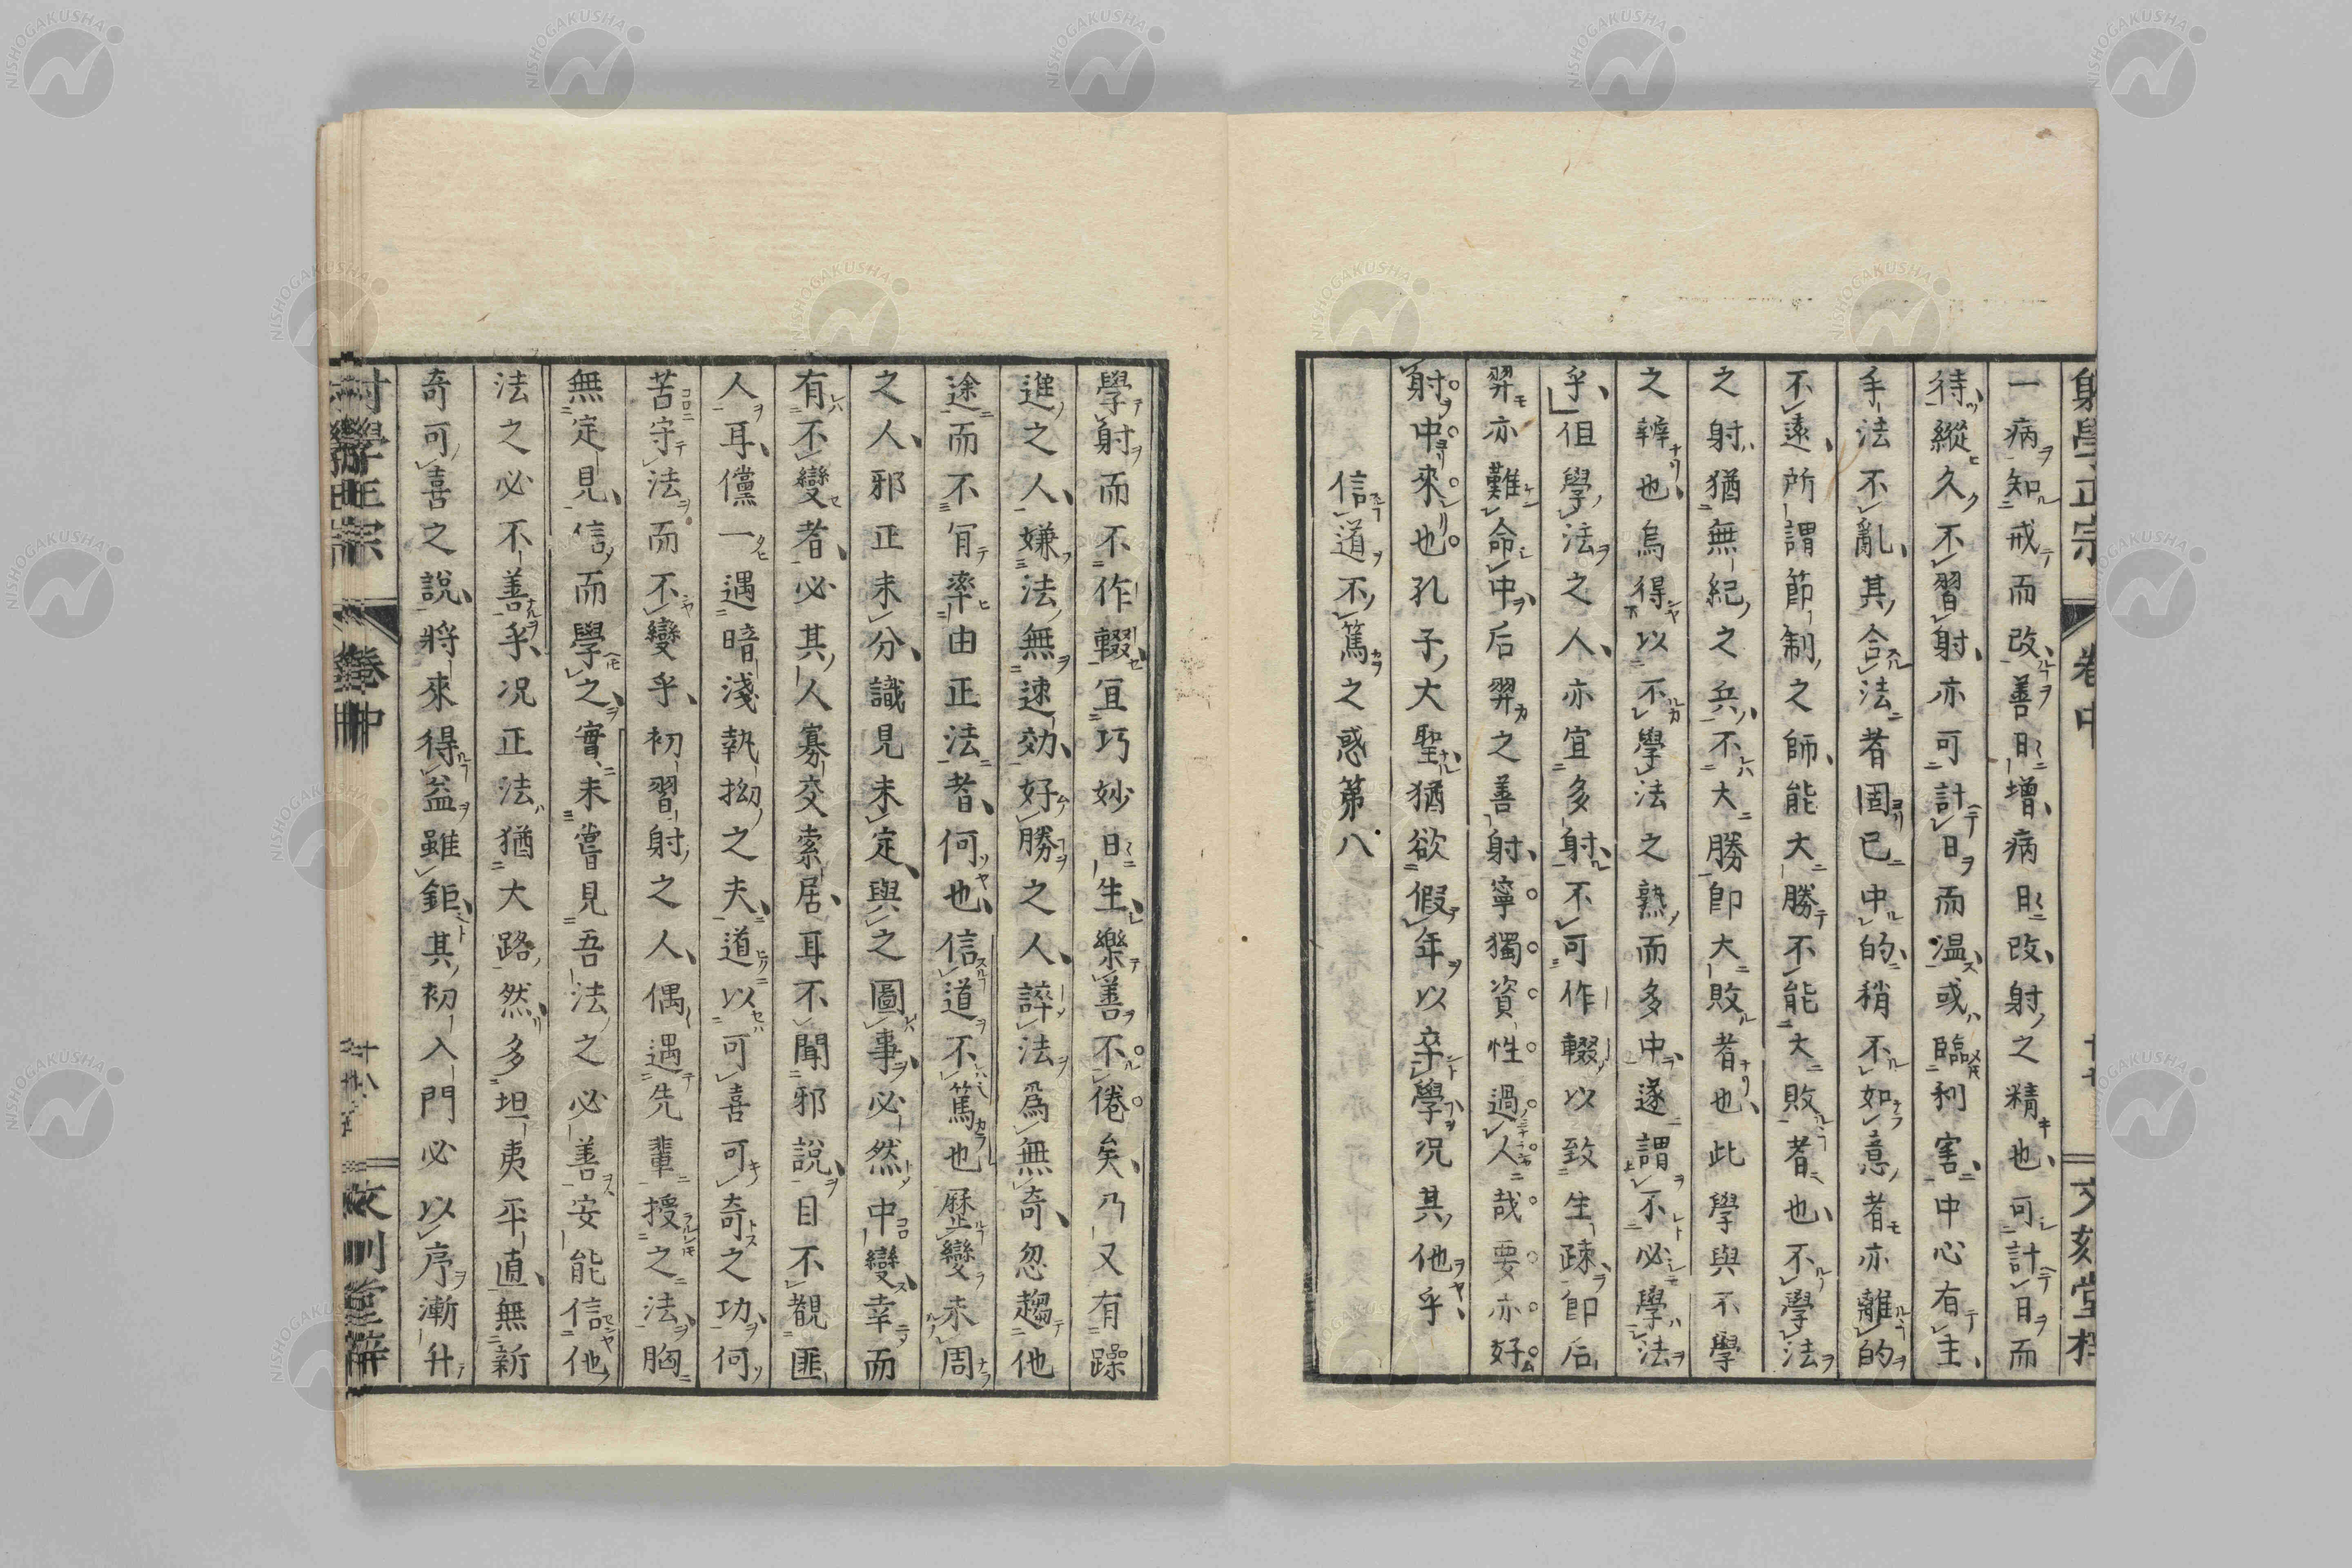 射學正宗 卷中
一病知戒而改善日增病日改射之精也可計日而
待縱久不習射亦可計日而温或臨利害中心有主
手法不亂其合法者固已中的稍不如意者亦離的
不遠所謂節制之師能大勝不能大敗者也不學法
之射猶無紀之兵不大勝卽大敗者也此學與不學
之辨也烏得以不學法之熟而多中遂謂不必學法
乎但學法之人亦宜多射不可作輟以致生疎卽后
羿亦難命中后羿之善射寧獨資性過人哉要亦好
射中來也孔子大聖猶欲假年以卒學况其他乎
信道不篤之惑第八
學射而不作輟宜巧妙日生樂善不倦矣乃又有躁
進之人嫌法無速効好勝之人誶法爲無奇忽趨他
途而不肎率由正法者何也信道不篤也歷變未周
之人邪正未分識見未定與之圖事必然中變幸而
有不變者必其人寡交索居耳不聞邪說目不覩匪
人耳儻一遇暗淺執拗之夫道以可喜可奇之功何
苦守法而不變乎初習射之人偶遇先輩授之法胸
無定見信而學之實未嘗見吾法之必善安能信他
法之必不善乎况正法猶大路然多坦夷平直無新
奇可喜之說將來得益雖鉅其初入門必以序漸升
射學正宗 卷中